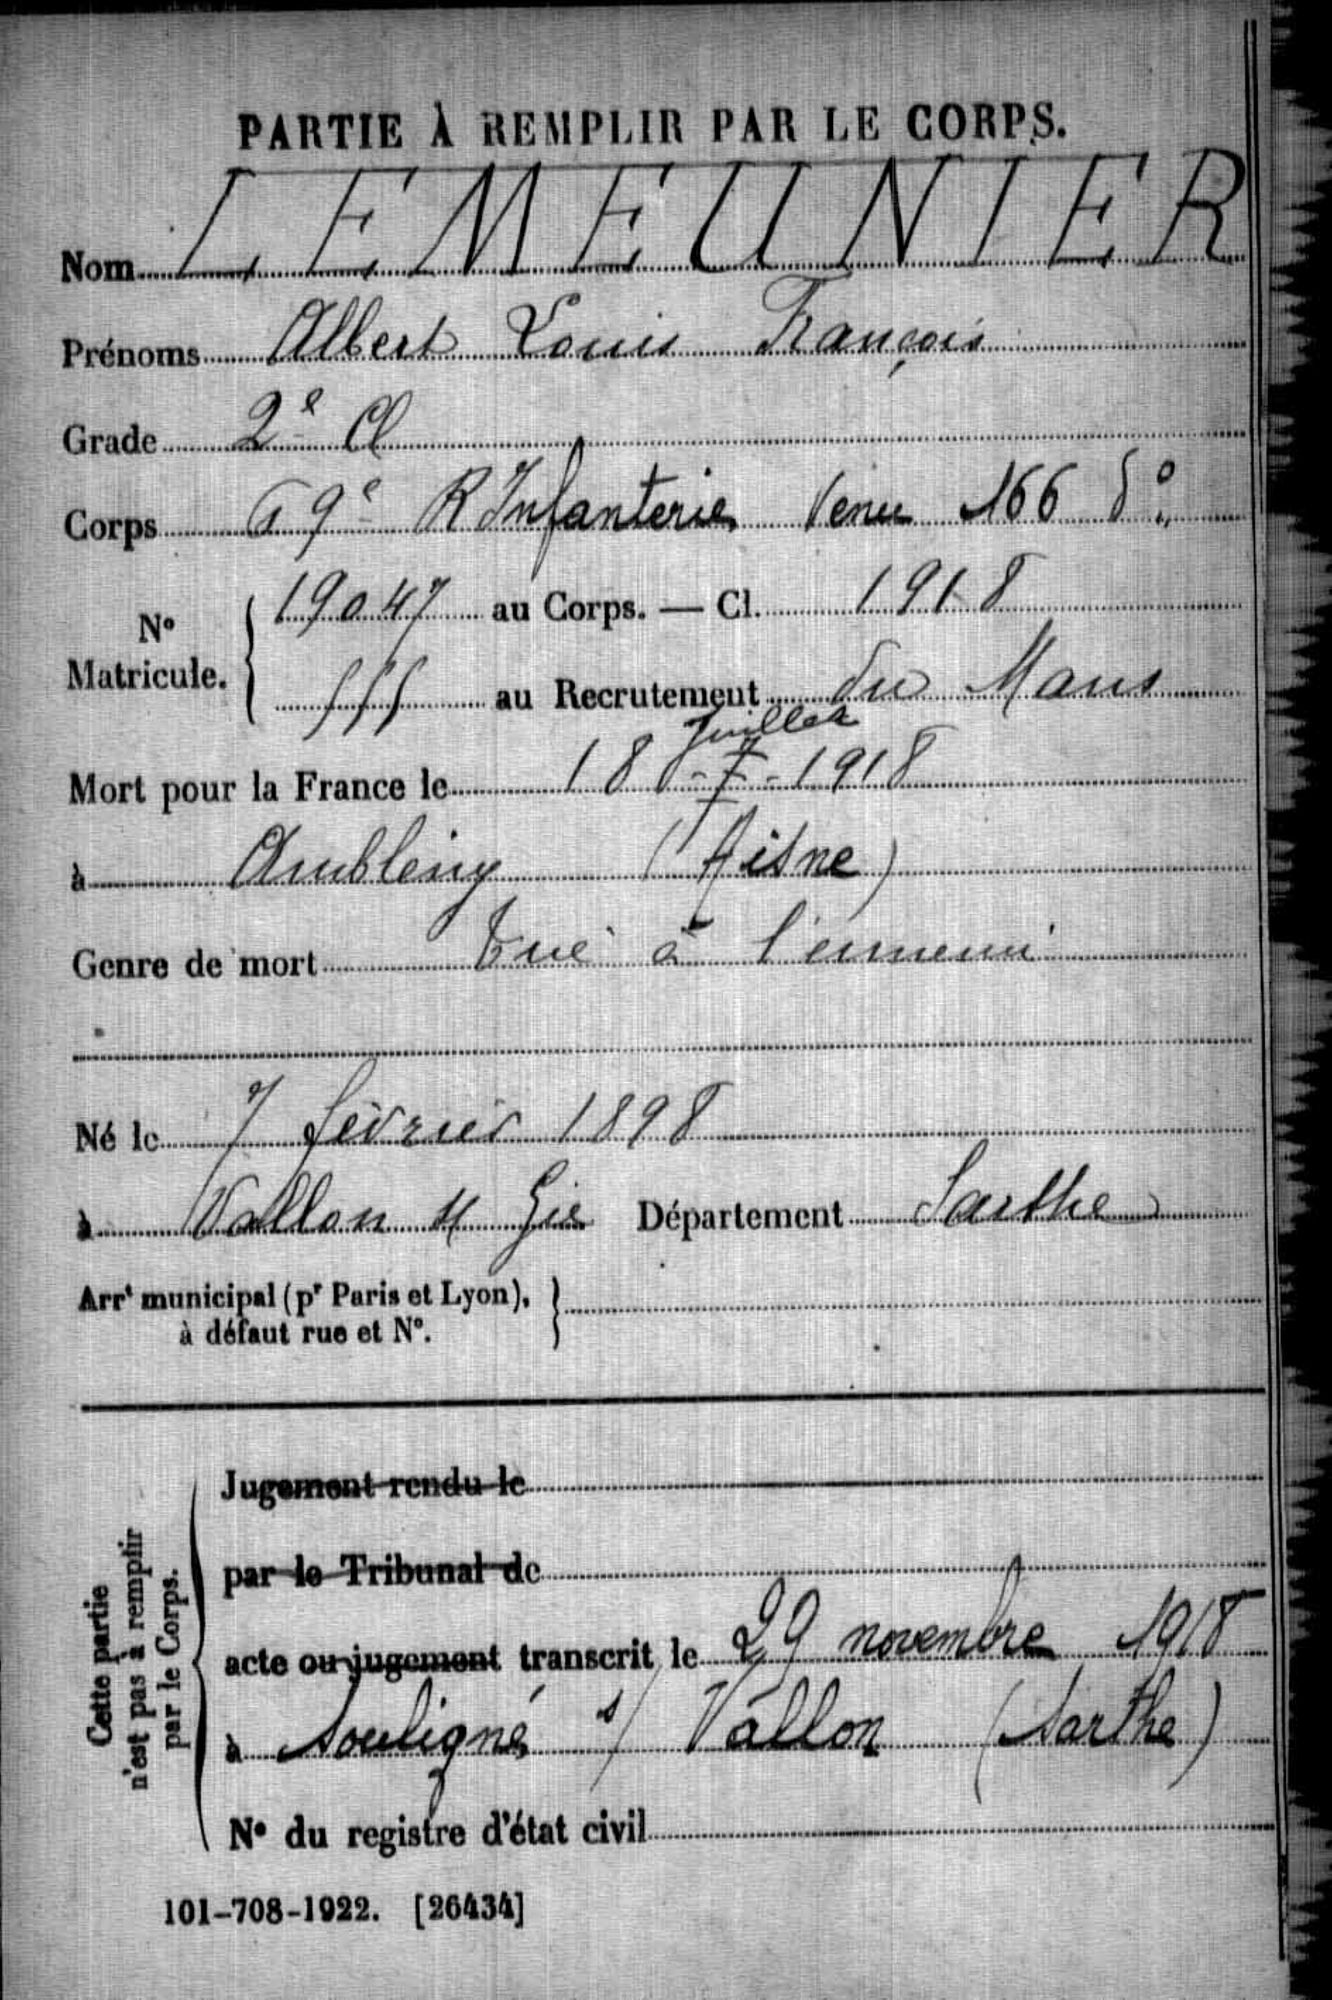 PARTIE À REMPLIR PAR LE CORPS.
Nom LEMEUNIER
Prénoms Albert Louis François
Grade 2e Cl
Corps 69e R Infanterie Venu 166 do
No Matricule. 19047 au Corps. — Cl. 1918
555 au Recrutement du Mans
Juillet
Mort pour la France le 18 - 7 - 1918
à Ambleny (Aisne)
Genre de mort tué à l'ennemi
Né le 7 février 1898
à Vallon s/ Gée Département Sarthe
Arrt municipal (pr Paris et Lyon),
à défaut rue et No.
Cette partie
n'est pas à remplir
par le Corps.
Jugement rendu le
par le Tribunal de
acte ou jugement transcrit le 29 novembre 1918
à Souligné s/ Vallon (Sarthe)
No du registre d'état civil
101-708-1922. [26434]